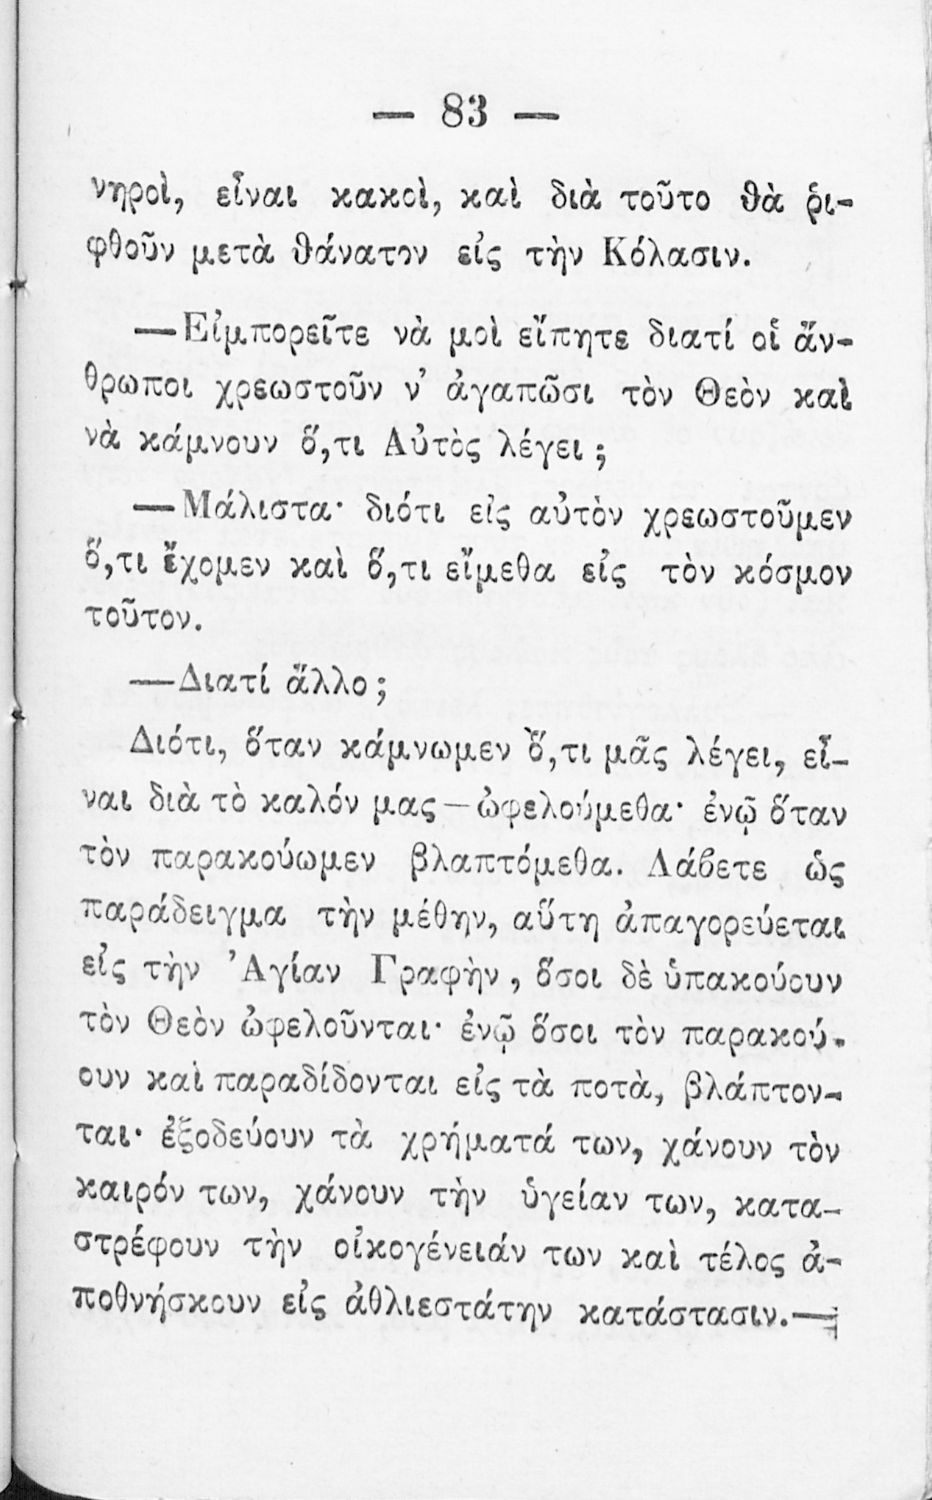 — 83 —
νηροὶ, εἶναι κακοὶ, καὶ διὰ τοῦτο θὰ ῥι-
φθοῦν μετὰ θάνατον εἰς τὴν Κόλασιν.
—Εἰμπορεῖτε νὰ μοὶ εἴπητε διατί οἱ ἄν-
θρωποι χρεωστοῦν ν' ἀγαπῶσι τὸν Θεὸν καὶ
νὰ κάμνουν ὅ,τι Αὐτὸς λέγει ;
—Μάλιστα· διότι εἰς αὐτὸν χρεωστοῦμεν
ὅ,τι ἔχομεν καὶ ὅ,τι εἴμεθα εἰς τὸν κόσμον
τοῦτον.
—Διατί ἄλλο;
Διότι, ὅταν κάμνωμεν ὅ,τι μᾶς λέγει, εἶ-
ναι διὰ τὸ καλόν μας—ὠφελούμεθα· ἐνῷ ὅταν
τὸν παρακούωμεν βλαπτόμεθα. Λάβετε ὡς
παράδειγμα τὴν μέθην, αὕτη ἀπαγορεύεται
εἰς τὴν Ἁγίαν Γραφὴν, ὅσοι δὲ ὑπακούουν
τὸν Θεὸν ὠφελοῦνται· ἐνῷ ὅσοι τὸν παρακού-
ουν καὶ παραδίδονται εἰς τὰ ποτὰ, βλάπτον-
ται· ἐξοδεύουν τὰ χρήματά των, χάνουν τὸν
καιρόν των, χάνουν τὴν ὑγείαν των, κατα-
στρέφουν τὴν οἰκογένειάν των καὶ τέλος ἀ-
ποθνήσκουν εἰς ἀθλιεστάτην κατάστασιν.—